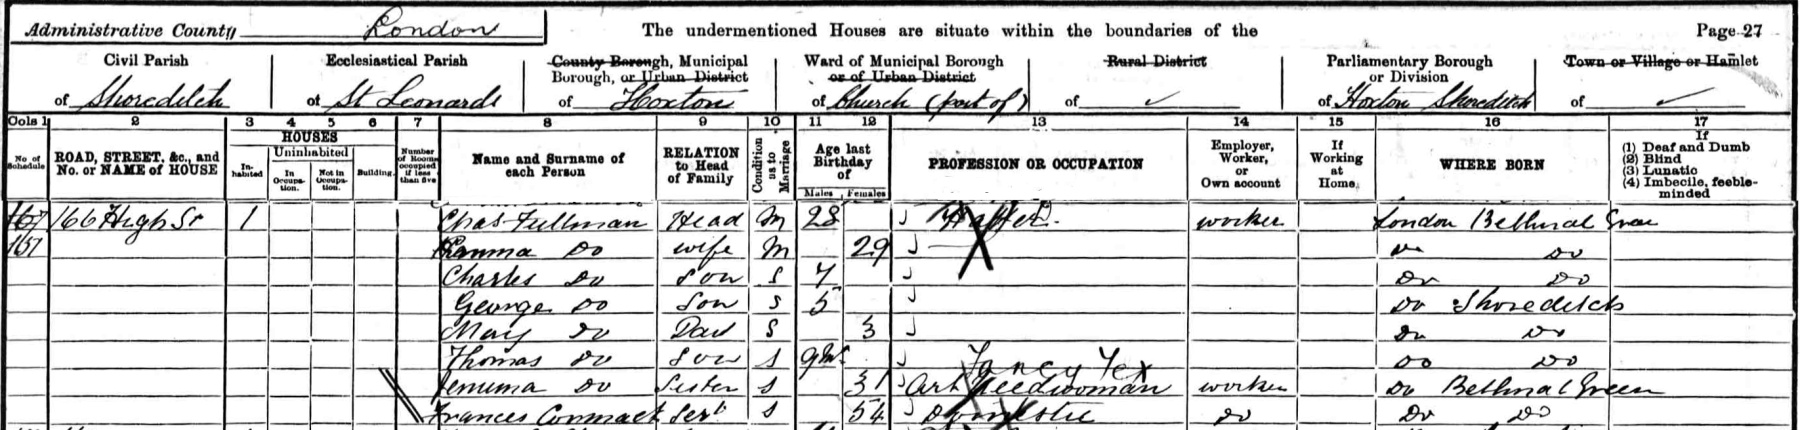 Administrative County London The undermentioned Houses are situate within the boundaries of the Page 27
Civil Parish of Shoreditch
Ecclesiastical Parish of St Leonards
County Borough, Municipal Borough, or Urban District of Hoxton
Ward of Municipal Borough or of Urban District of Church (part of)
Rural District of ✓
Parliamentary Borough or Division of Hoxton Shoreditch
Town or Village or Hamlet of ✓
Cols 1 2 3 4 5 6 7 8 9 10 11 12 13 14 15 16 17
No of Schedule
ROAD, STREET, &c., and No. or NAME of HOUSE
HOUSES
Inhabited
Uninhabited
In Occupation.
Not in Occupation.
Building.
Number of Rooms occupied if less than five
Name and Surname of each Person
RELATION to Head of Family
Condition as to Marriage
Age last Birthday of
Males Females
PROFESSION OR OCCUPATION
Employer, Worker, or Own account
If Working at Home
WHERE BORN
If
(1) Deaf and Dumb
(2) Blind
(3) Lunatic
(4) Imbecile, feeble-minded
167 166 High St 1 Chas Fullman Head M 28 worker London Bethnal Green
157 Emma Do wife M 29 Do Do
Charles Do Son S 7 Do Do
George Do Son S 5 Do Shoreditch
May Do Dau S 3 Do Do
Thomas Do Son S 9 Ms Do Do
Fancy Tex
Jemima Do Sister S 31 Art Needwoman worker Do Bethnal Green
Frances Sert S 54 Domestic Do Do Do